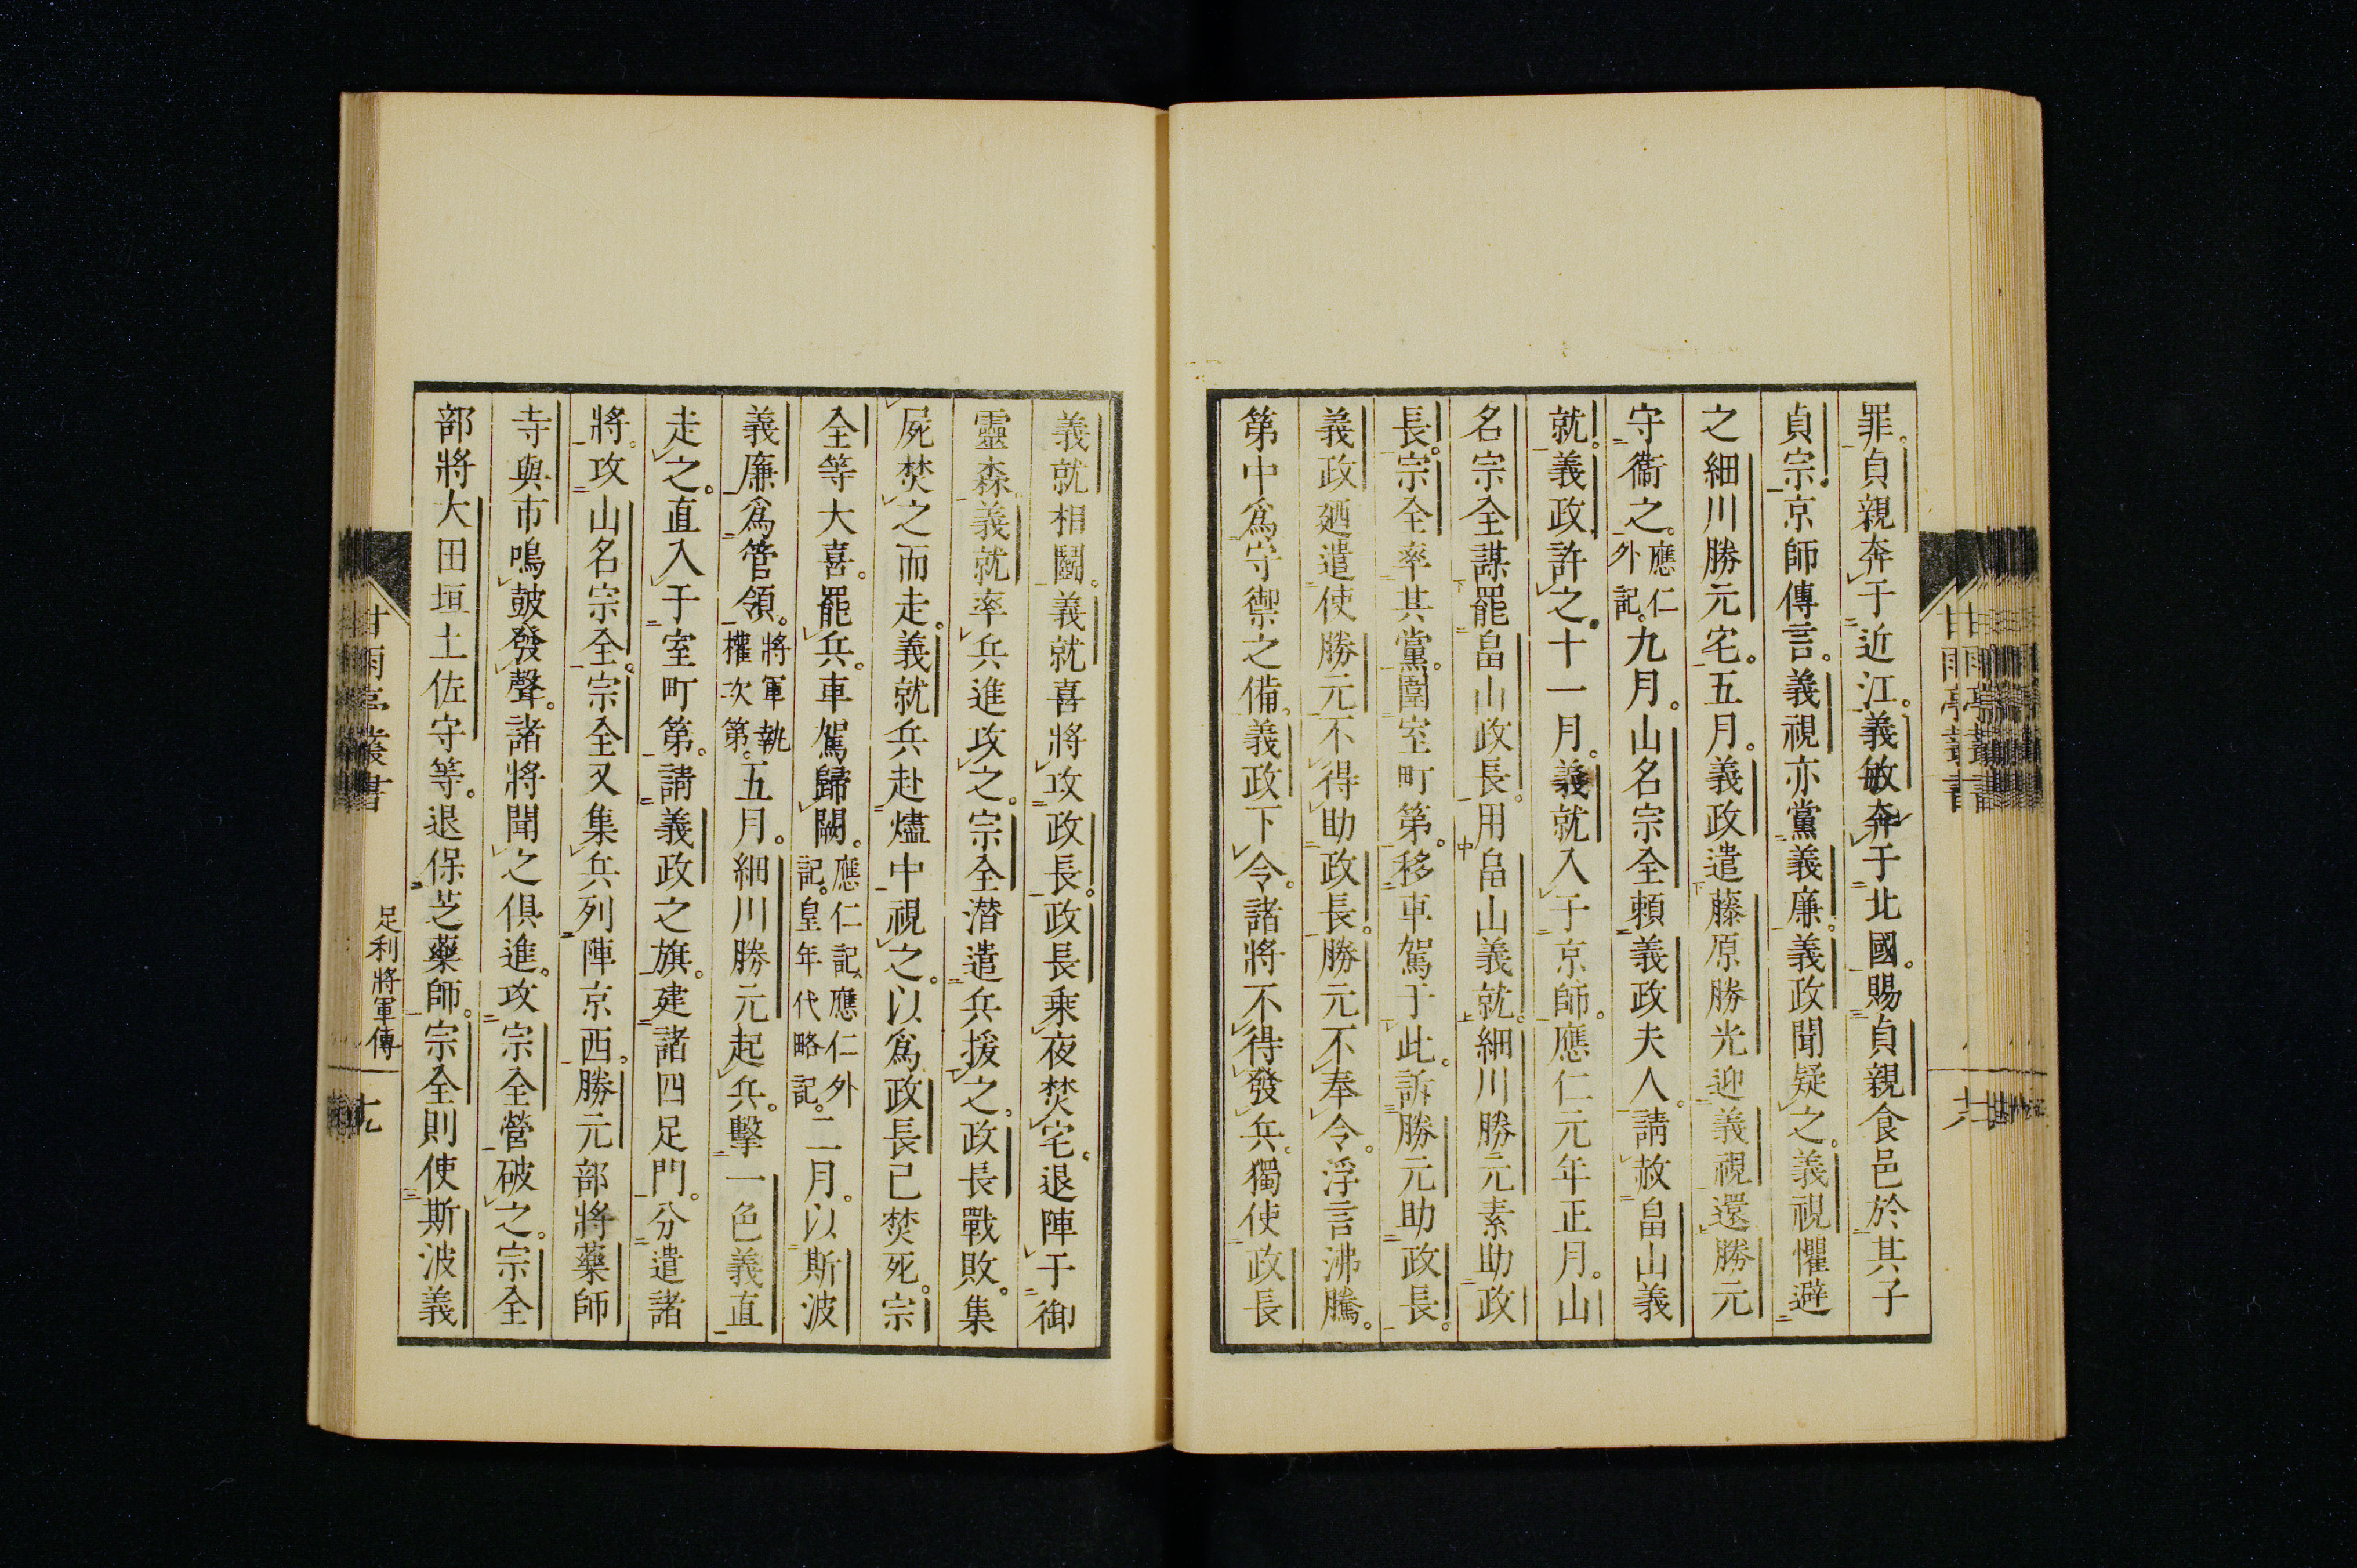 罪。貞親奔于近江。義敏奔于北國。賜貞親食邑於其子
貞宗。京師傳言。義視亦黨義廉。義政聞疑之。義視懼避
之細川勝元宅。五月。義政遣藤原勝光迎義視還勝元
守衞之。應仁外記。九月。山名宗全賴義政夫人。請赦畠山義
就。義政許之。十一月。義就入于京師。應仁元年正月。山
名宗全謀罷畠山政長。用畠山義就。細川勝元素助政
長。宗全率其黨。圍室町第。移車駕于此。訴勝元助政長。
義政廼遣使勝元不得助政長。勝元不奉令。浮言沸騰。
第中爲守禦之備。義政下令。諸將不得發兵。獨使政長
義就相鬪。義就喜將攻政長。政長乘夜焚宅。退陣于御
靈森。義就率兵進攻之。宗全潛遣兵援之。政長戰敗。集
屍焚之而走。義就兵赴燼中視之。以爲政長已焚死。宗
全等大喜。罷兵。車駕歸闕。應仁記、應仁外記。皇年代略記。二月。以斯波
義廉爲管領。將軍執權次第。五月。細川勝元起兵。擊一色義直
走之。直入于室町第。請義政之旗。建諸四足門。分遣諸
將。攻山名宗全。宗全又集兵列陣京西。勝元部將藥師
寺與市鳴鼓發聲。諸將聞之俱進。攻宗全營破之。宗全
部將大田垣土佐守等。退保芝藥師。宗全則使斯波義
甘雨亭叢書
足利將軍傳
甘雨亭叢書